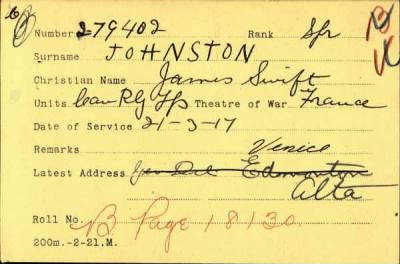 Number 279402 Rank Spr B
Surname JOHNSTON V
Christian Name James Swift
Units Can Rly Tps Theatre of War France
Date of Service 21-3-17
Remarks Venice
Latest Address Gen Del Edmonton
Alta
Roll No. B. Page 18130.
200m.-2-21.M.